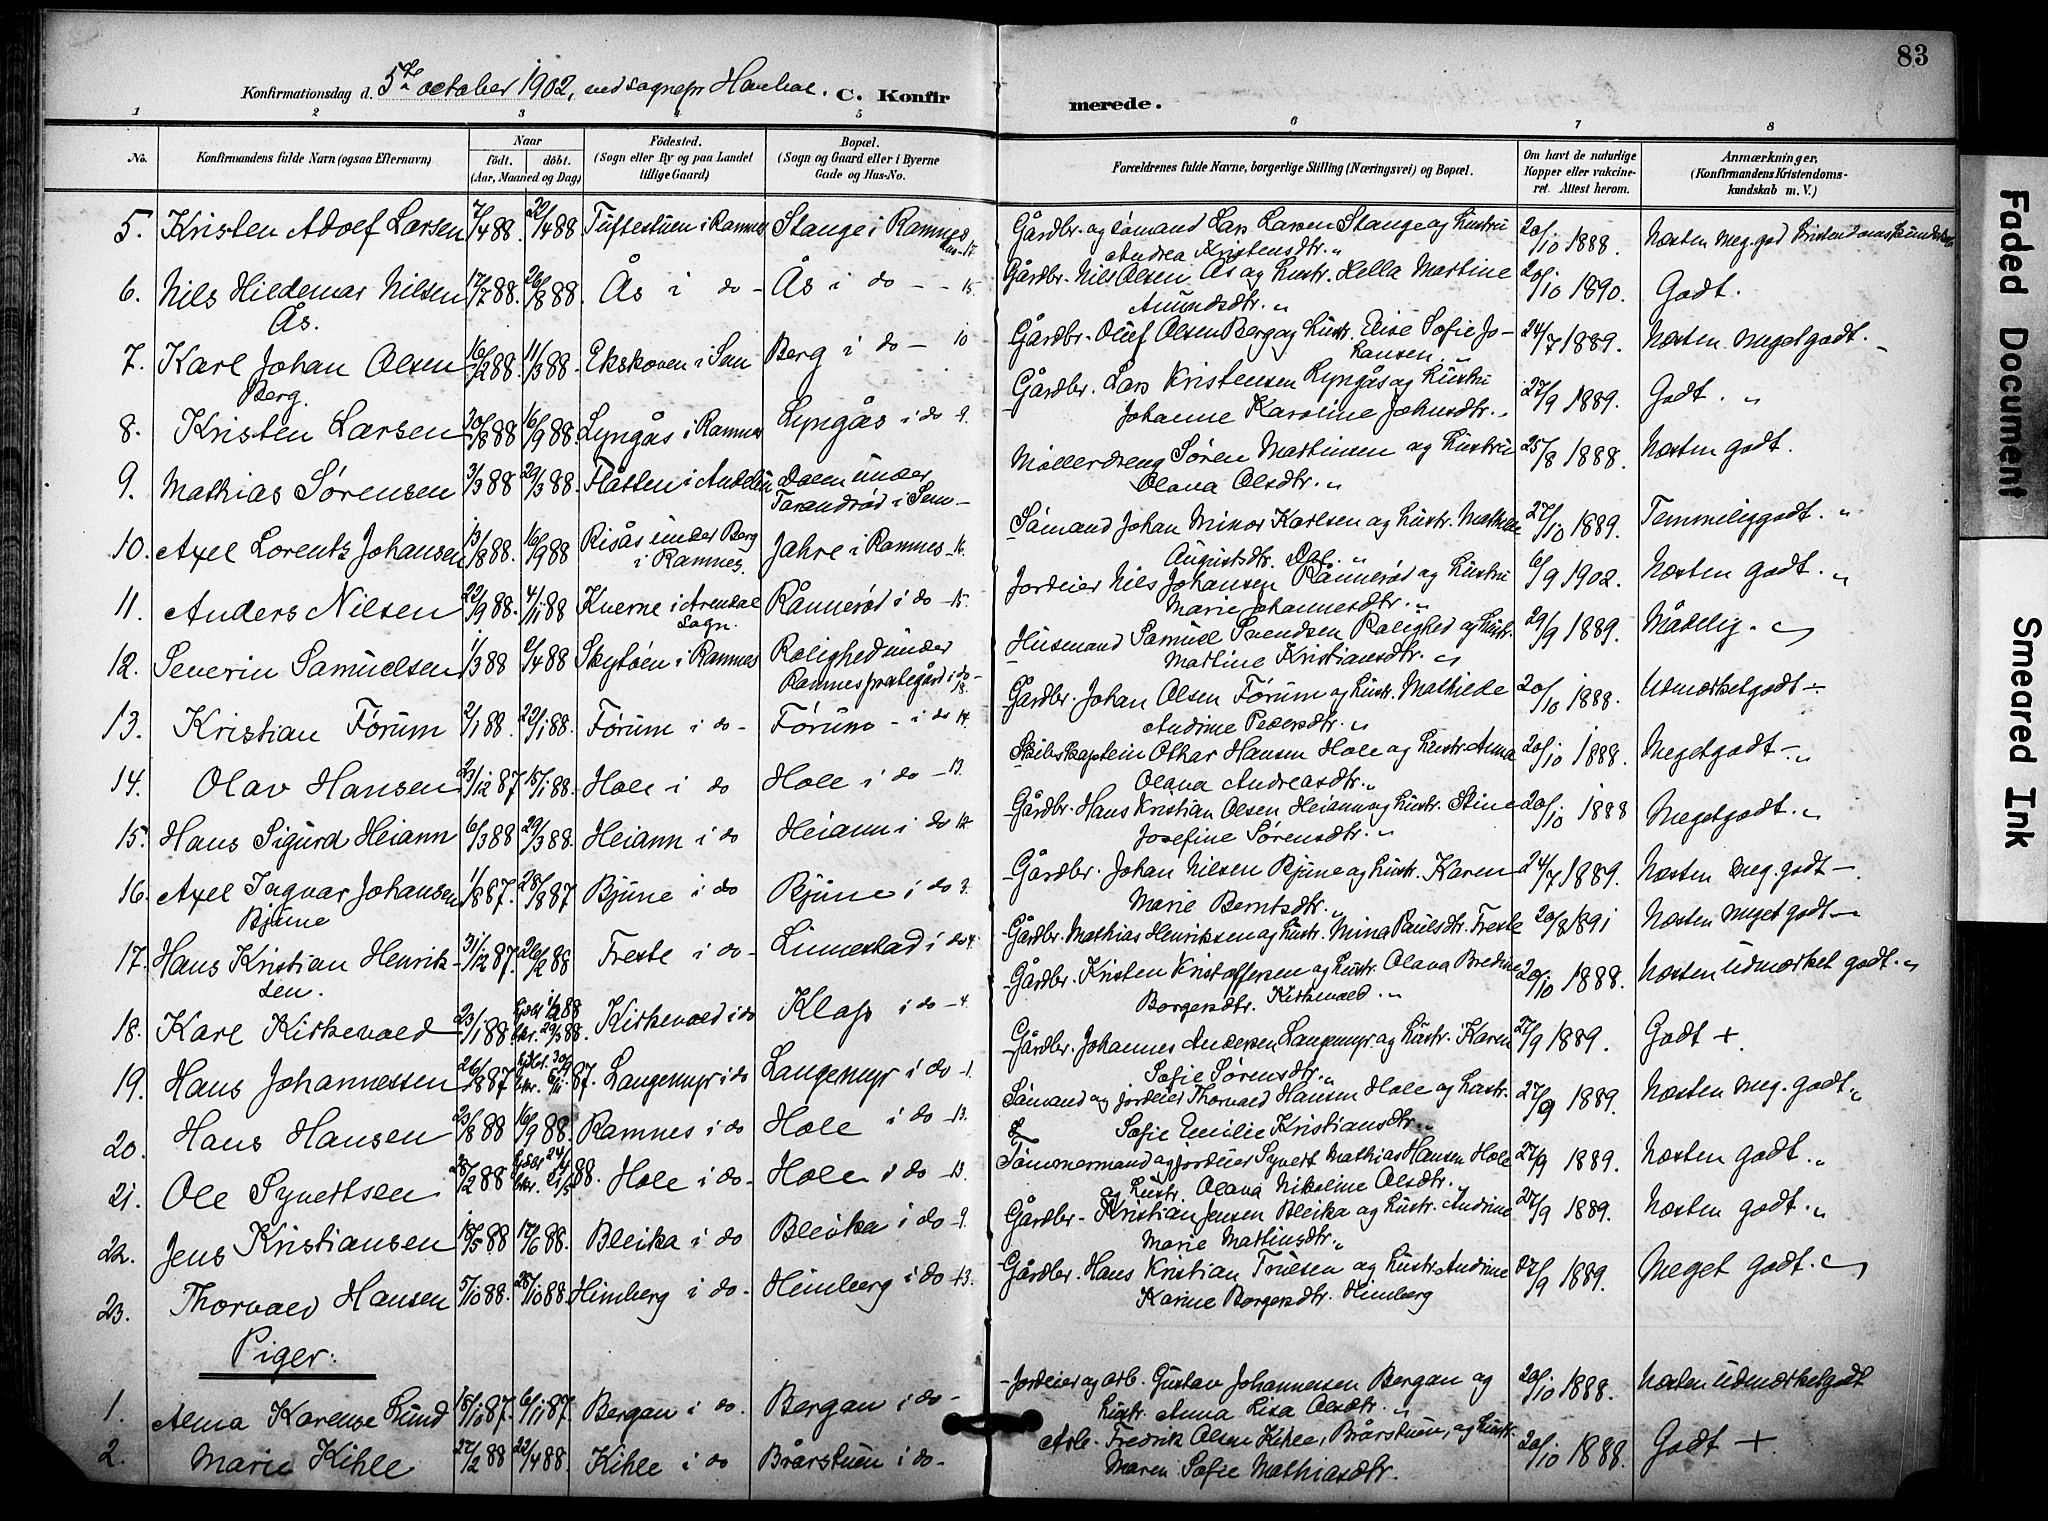 83
Konfirmationsdag d. 5te october 1902, ved sognepr
C. Konfirmerede.
1 2 3 4 5 6 7 8
No.
Konfirmandens fulde Navn (ogsaa Efternavn)
Naar
født. døbt.
(Aar, Maaned og Dag)
Födested.
(Sogn eller By og paa Landet tillige Gaard)
Bopæl.
(Sogn og Gaard eller i Byerne Gade og Hus-No.
Forældrenes fulde Navne, borgerlige Stilling (Næringsvei) og Bopæl.
Om havt de naturlige Kopper eller vakcineret. Attest herom.
Anmærkninger,
(Konfirmandens Kristendomskundskab m. V.)
5. Kristen Adolf Larsen 7/4 88. 22/4 88 Tuftestuen i Ramnes Stange i Ramnes Gårdbr. og sømand Lars Larsen Stange og hustru Andrea Kristensdtr. „ 20/10 1888. Næsten meg. god Kristendomskundskab
6. Nils Hildemar Nilsen Ås. 17/7 88. 26/8 88 Ås i do - Ås i do - - 15. Gårdbr. Nils Olsen Ås og hustr. Hella Martine Amundsdtr. „ 20/10 1890. Godt.
7. Karl Johan Olsen Berg. 16/2 88. 11/3 88. Ekskoven i Sem Berg i do - 10 Gårdbr. Oluf Olsen Berg og hustr. Elise Sofie Johansen. „ 24/7 1889. Næsten meget godt. -
8. Kristen Larsen 20/8 88 16/9 88. Lyngås i Ramnes Lyngås i do - 9. Gårdbr. Lars Kristensen Lyngås og hustru Johanne Karoline Johnsdtr. „ 27/9 1889. Godt. „
9. Mathias Sørensen 3/3 88 29/3 88. Flåtten i Andebu Dalen under Tarandrød i Sem - Møllerdreng Søren Martinsen og hustru Olava Olsdtr. „ 25/8 1888. Næsten godt.
10. Axel Lorentz Johansen 13/8 88. 16/9 88 Risås under Berg i Ramnes. Jahre i Ramnes - 16. Sømand Johan Minor Karlsen og hustr. Mathilde Augustsdtr. „ 27/10 1889. Temmelig godt. „
11. Anders Nilsen 22/9 88. 4/11 88 Kverne i Arendal Sogn. Rånnerød i do - 15. Jordeier Nils Johansen Rånnerød og hustru Marie Johannesdtr. „ 6/9 1902. Næsten godt. „
12. Severin Samuelsen 1/3 88 2/4 88 Skytøen i Ramnes Rolighed under Ramnes præstegård i do - 18. Husmand Samuel Svendsen Rolighed og hustr. Martine Kristiansdtr. „ 29/9 1889. Mådelig. „
13. Kristian Førum 2/1 88. 22/1 88. Førum i do - Førum - i do 14. Gårdbr. Johan Olsen Førum og hustr. Mathilde Andrine Pedersdtr. „ 20/10 1888. Udmærket godt -
14. Olav Hansen 23/12 87 15/1 88. Hole i do Hole i do - 13. Skibskaptein Othar Hansen Hole og hustr. Anna Olava Andreasdtr. „ 20/10 1888. Meget godt - „
15. Hans Sigurd Heiann 6/3 88 29/3 88. Heiann i do Heiann i do 12. Gårdbr. Hans Kristian Olsen Heiann og hustr. Stine Josefine Sørensdtr. „ 20/10 1888 Meget godt. „
16. Axel Ingvar Johansen Bjune 1/8 87. 28/8 87 Bjune i do Bjune i do 3. Gårdbr. Johan Nilsen Bjune og hustr. Karen Marie Berntsdtr. „ 24/7 1889. Næsten meg. godt -.
17. Hans Kristian Henriksen. 31/12 87. 26/2 88 Freste i do - Linnestad i do 4. Gårdbr. Mathias Henriksen og hustr. Mina Paulsdtr. Freste 20/8 1891 Næsten meget godt -
18. Karl Kirkevold 23/1 88. 29/3 88. Kirkevold i do Klop i do - 4. Gårdbr. Kristen Kristoffersen og hustr. Olava Bredine Borgersdtr. Kirkevold. „ 20/10 1888. Næsten udmærket godt. „
19. Hans Johannessen 26/8 87 87. Langemyr i do Langemyr i do - 1. Gårdbr. Johannes Andersen Langemyr. og hustr. Karen Sofie Sørensdtr. „ 27/9 1889. Godt +.
20. Hans Hansen 23/8 88 16/9 88. Ramnes i do Hole i do - 13. Sømand og jordeier Thorvald Hansen Hole og hustr. Sofie Emilie Kristiansdtr. „ 27/9 1889. Næsten meg. godt „
21. Ole Syvertsen 28/2 88 21/5 88. Hole i do - Hole i do - 13. Tømmermand og jordeier Syvert Mathias Hansen Hole og hustr. Olava Nikoline Olsdtr. „ 27/9 1889. Næsten godt. „
22. Jens Kristiansen 18/5 88 17/6 88. Bleika i do Bleika i do - 9. Gårdbr. Kristian Jensen Bleika og hustr. Andrine Marie Martinsdtr. „ 27/9 1889. Næsten godt. „
23. Thorvald Hansen 5/10 88. 28/10 88 Himberg i do - Himberg i do - 13. Gårdbr. Hans Kristian Truesen og hustr. Andrine Karine Borgersdtr. Himberg 27/9 1889. Meget godt. „
Piger:
1. Alma Karense Lund 15/10 87. 6/11 87. Bergan i do. Bergan i do - Jordeier og arb. Gustav Johannessen Bergan og hustr. Anna Lisa Olsdtr. „ 20/10 1888. Næsten udmærket godt
2. Marie Kihle 27/2 88 22/4 88. Kihle i do Brårstuen i do - Arb. Fredrik Olsen Kihle, Brårstuen, og hustr. Maren Sofie Mathiasdtr. 20/10 1888. Godt +
Faded Document
Smeared Ink